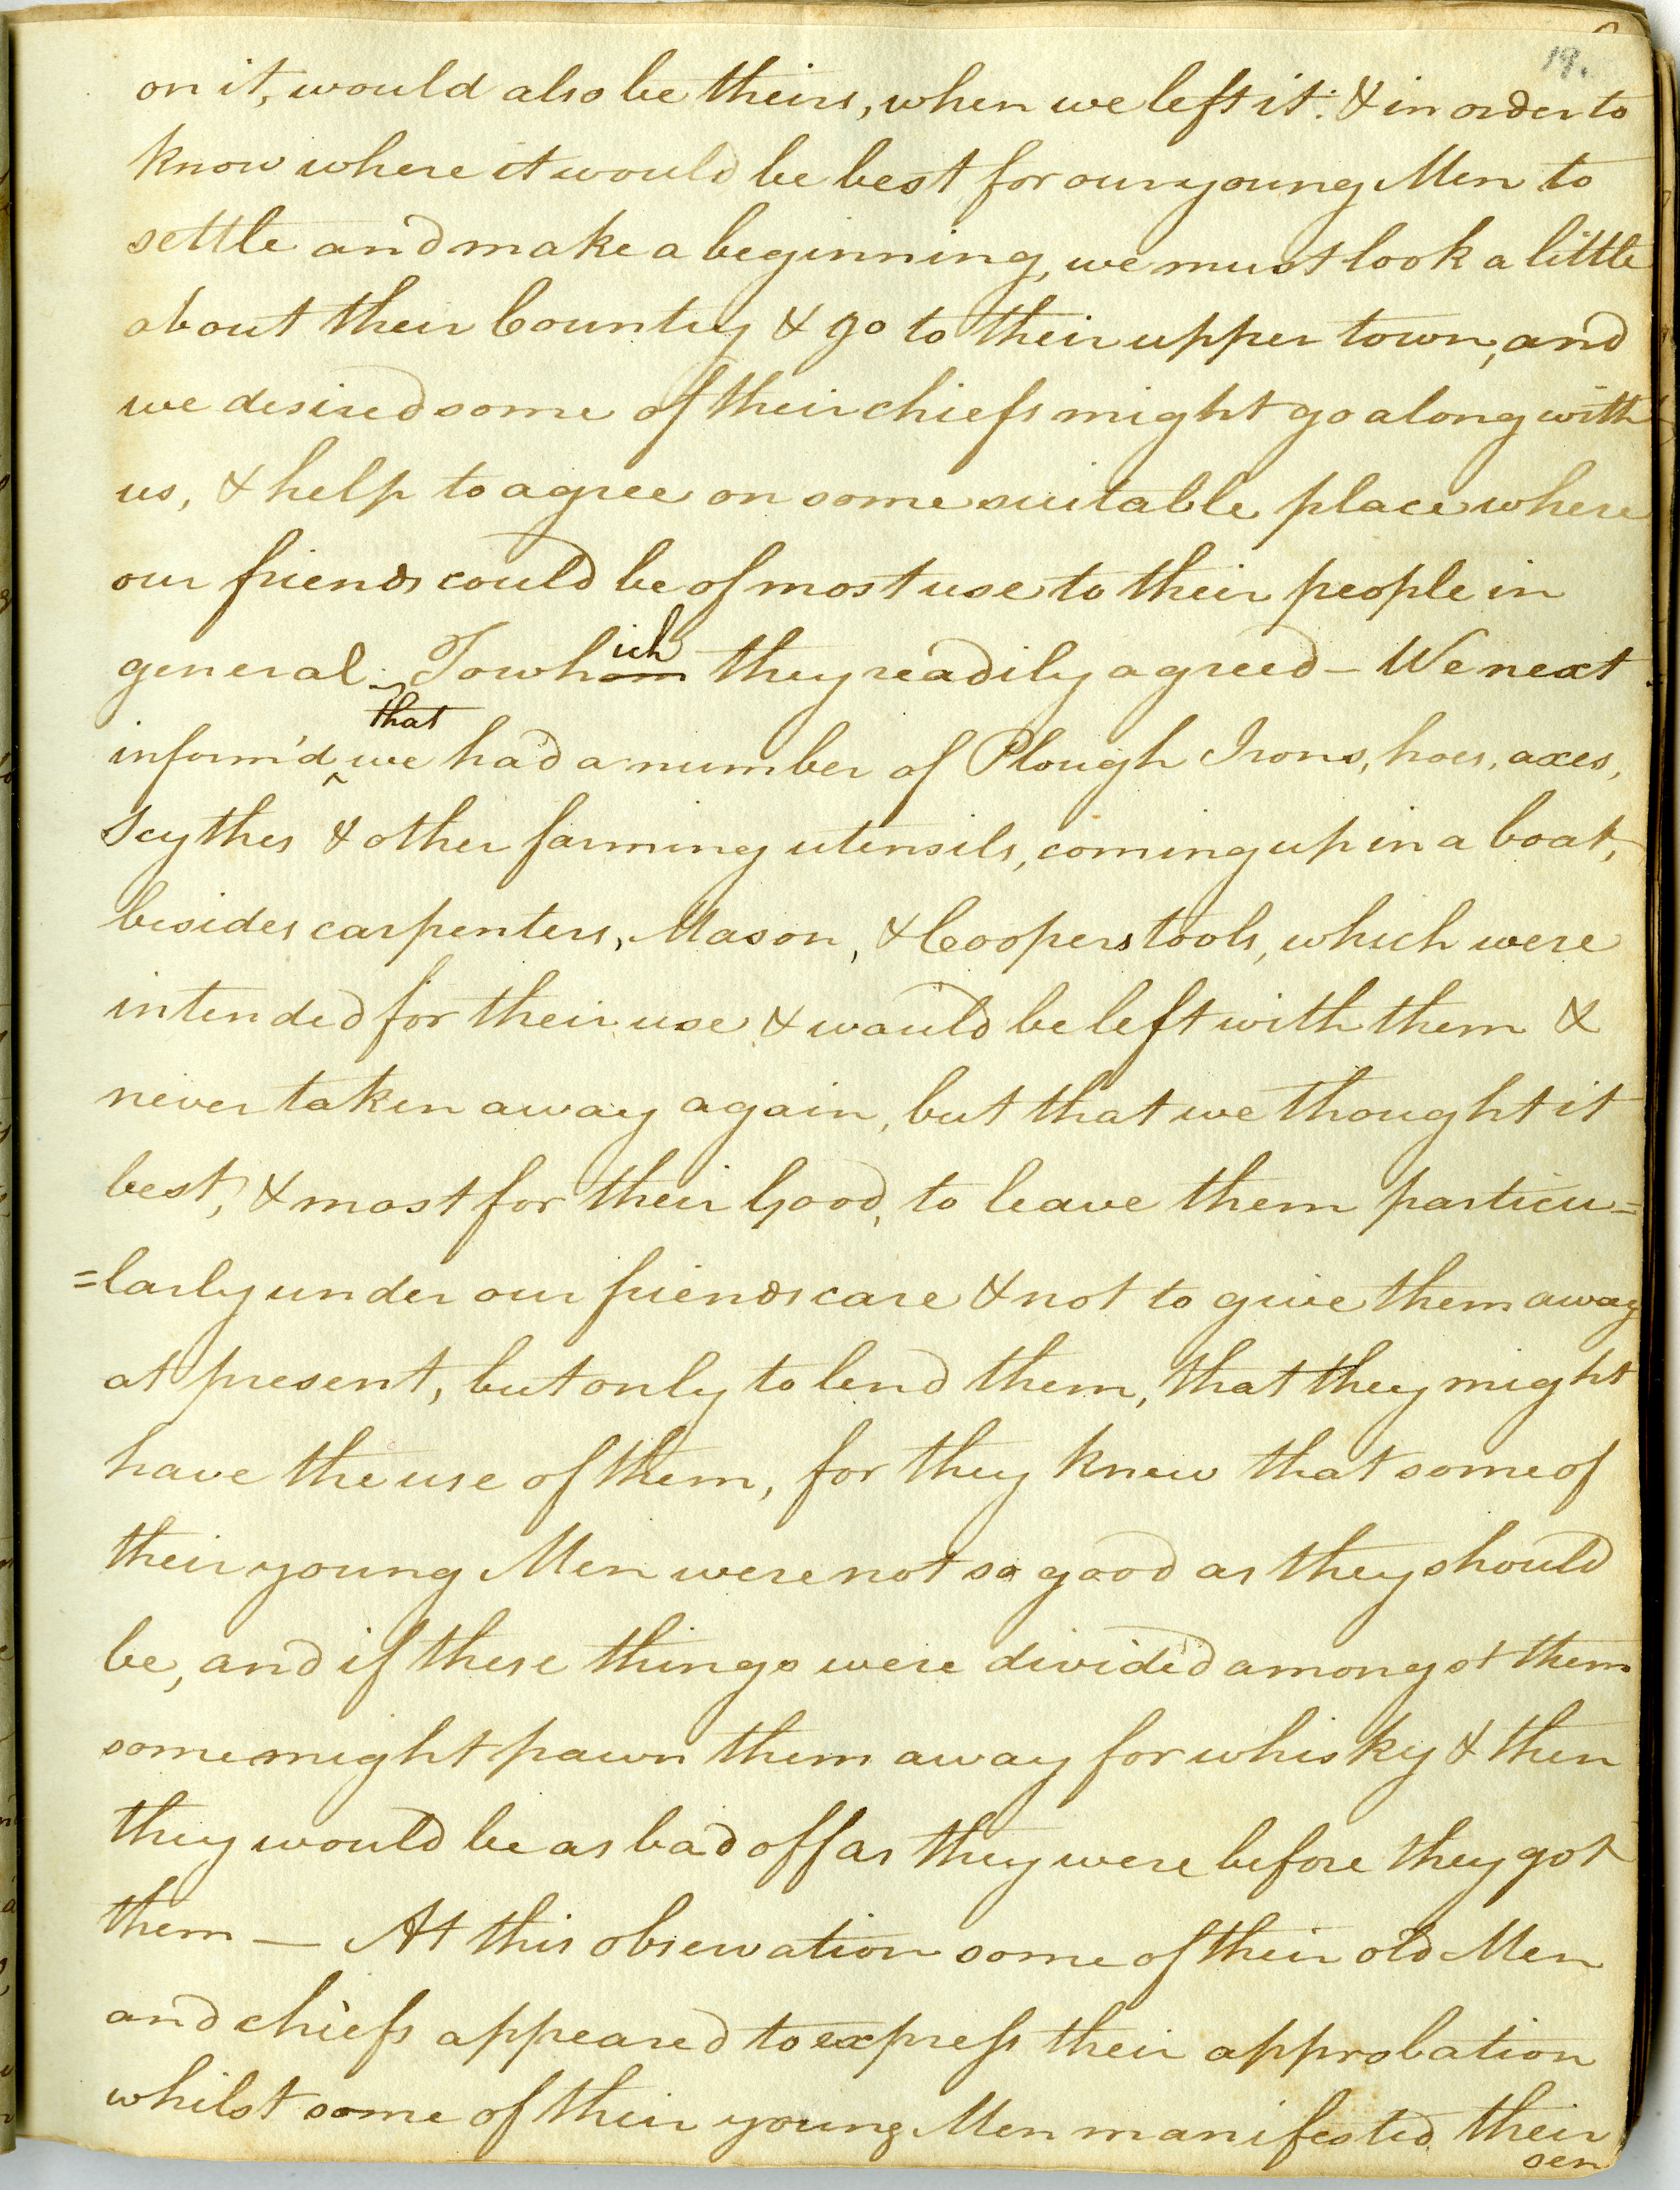 19.
on it, would also be theirs, when we left it: & in order to
know where it would be best for our young Men to
settle and make a beginning, we must look a little
about their Country & go to their upper town, and
we desired some of their chiefs might go along with
us, & help to agree on some suitable place where
our friends could be of most use to their people in
general. To whom ich they readily agreed – We next
that
inform'd ^ we had a number of Plough Irons, hoes, axes,
Scythes & other farming utensils, coming up in a boat,
besides carpenters, Mason, & Coopers tools, which were
intended for their use & would be left with them &
never taken away again, but that we thought it
best, & most for their Good, to leave them particu=
=larly under our friends care & not to give them away
at present, but only to lend them, that they might
have the use of them, for they knew that some of
their young Men were not so good as they should
be, and if these things were divided amongst them
some might pawn them away for whisky & then
they would be as bad off as they were before they got
them — At this observation some of their old Men
and chiefs appeared to express their approbation
whilst some of their young Men manifested their
sen